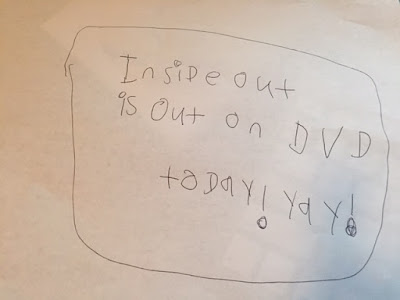 Inside out
is out on DVD
taDay! yay!